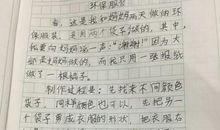 环保服装
看，这是我和妈妈两天做的环
保服装。采用两个袋子做的。其中，
我要向妈妈说一声："谢谢！"因为大
部妈妈做的，而我只用一张报纸
做了一根裙子。
制作过程是：先找来不同颜色
袋子，同样颜色也可以，先把另一
个袋子剪成衣服的形状，把衣服右